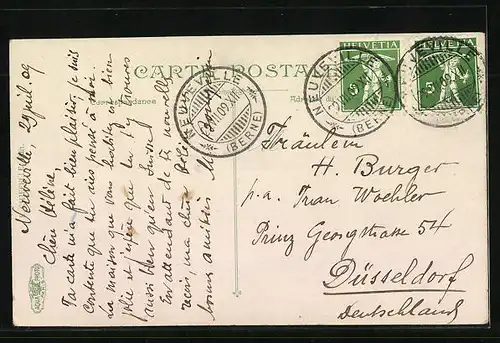 CARTE POSTALE
Correspondance
Adresse
HELVETIA
5
HELVETIA
5
NEUVEVILLE
(BERNE)
NEUVEVILLE
(BERNE)
Neuveville, 09
Chère Hélène
Ta carte m'a fait bien plaisir, je suis
contente que tu aies pensé à moi
La maison que vous habitez est bien
jolie et j'espère que tu t'y trouves
aussi bien qu'en Suisse!
En attendant de te nouvelles
reçois, ma chère Hélène
bonnes amitiés
Fräulein
H. Burger
p.a. Frau Woehler
Prinz Georgstrasse 54
Düsseldorf
Deutschland